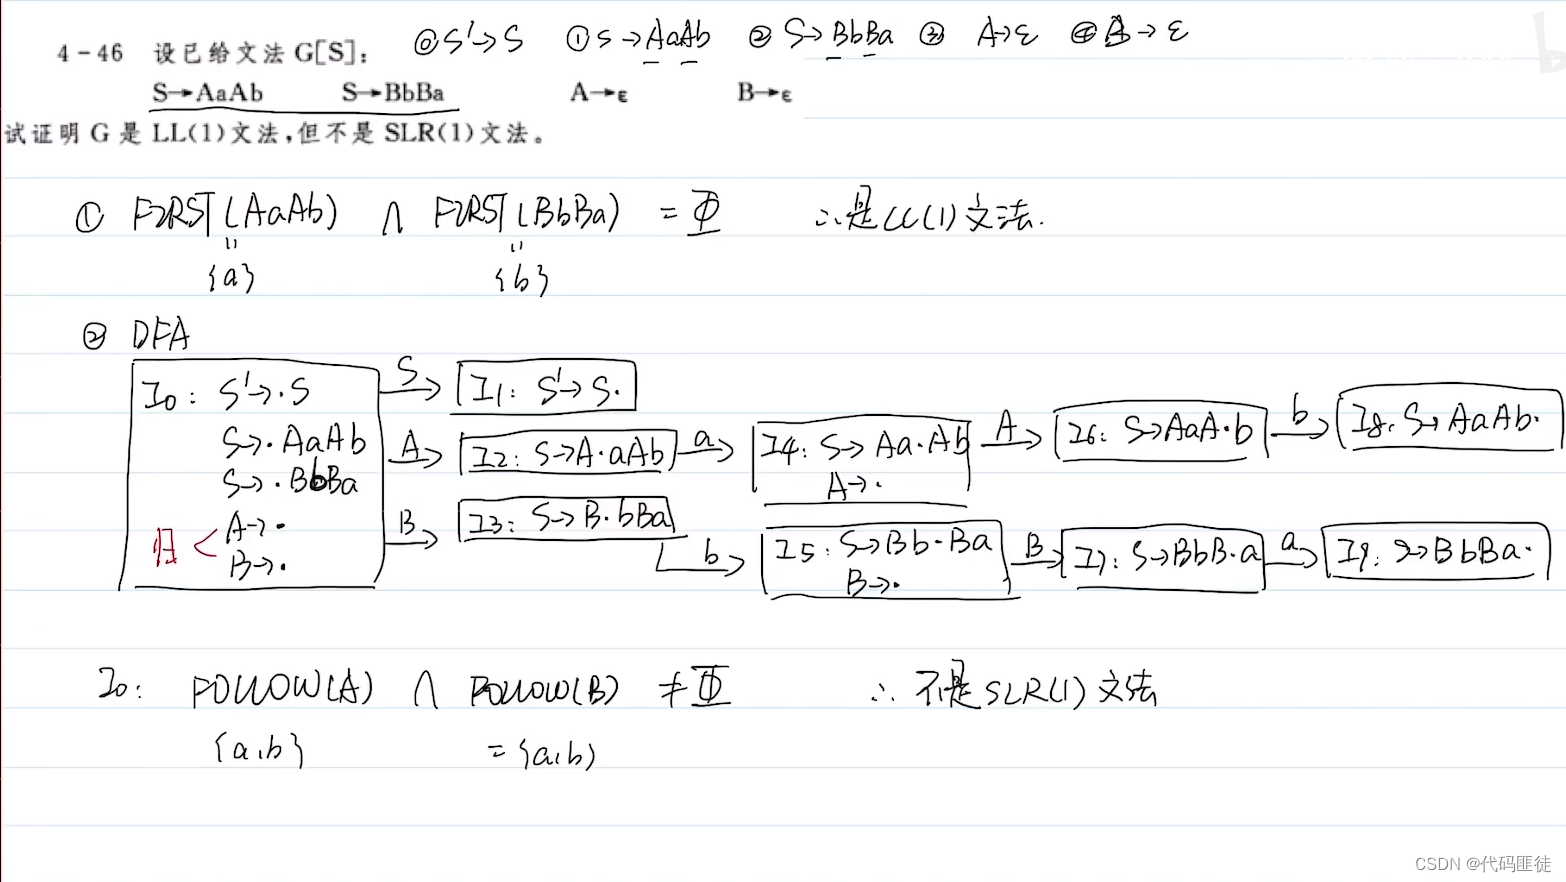 4-46 设已给文法 G[S]: ⓪ S'→S ① S→AaAb ② S→BbBa ③ A→ε ④ B→ε
S→AaAb S→BbBa A→ε B→ε
试证明 G 是 LL(1)文法,但不是 SLR(1)文法。
① FIRST(AaAb) ∩ FIRST(BbBa) = Φ ∴是LL(1)文法.
{a} {b}
② DFA
I0: S'→·S
S→·AaAb
S→·BbBa
归 < A→·
B→·
S I1: S'→S·
A I2: S→A·aAb a I4: S→Aa·Ab A I6: S→AaA·b b I8: S→AaAb·
A→·
B I3: S→B·bBa
b I5: S→Bb·Ba B I7: S→BbB·a a I9: S→BbBa·
B→·
I0: FOLLOW(A) ∩ FOLLOW(B) ≠ Φ ∴ 不是SLR(1)文法
{a,b} ={a,b}
CSDN @代码匪徒